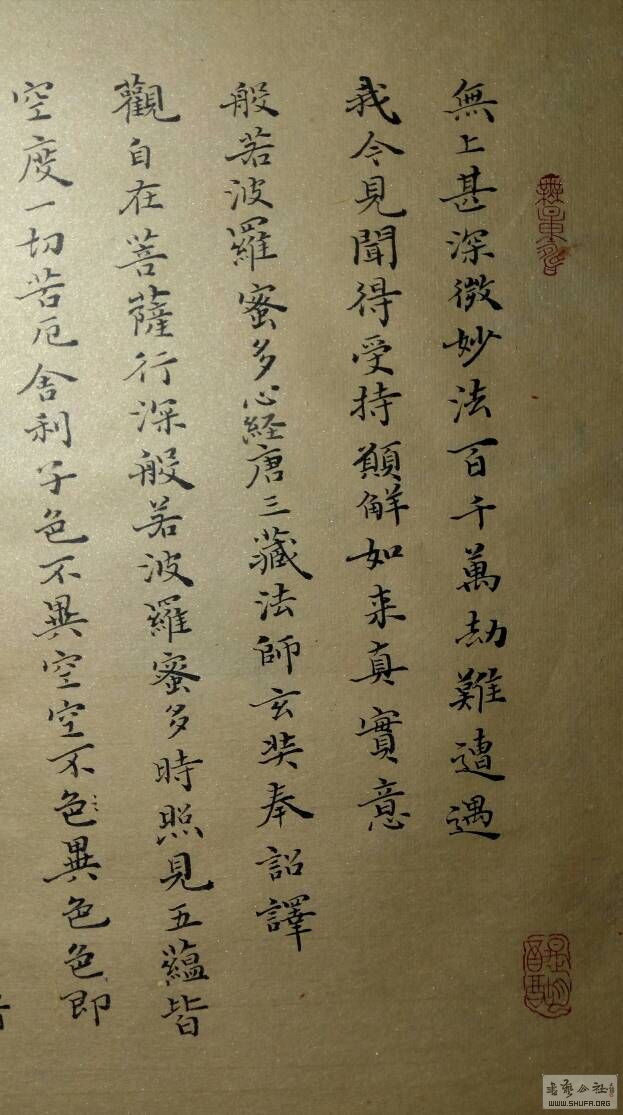 無上甚深微妙法百千萬劫難遭遇
我今見聞得受持願解如来真實意
般若波羅蜜多心経唐三藏法師玄奘奉詔譯
觀自在菩薩行深般若波羅蜜多時照見五蘊皆
空度一切苦厄舍利子色不異空空不色異色色即
WWW.SHUFA.ORG